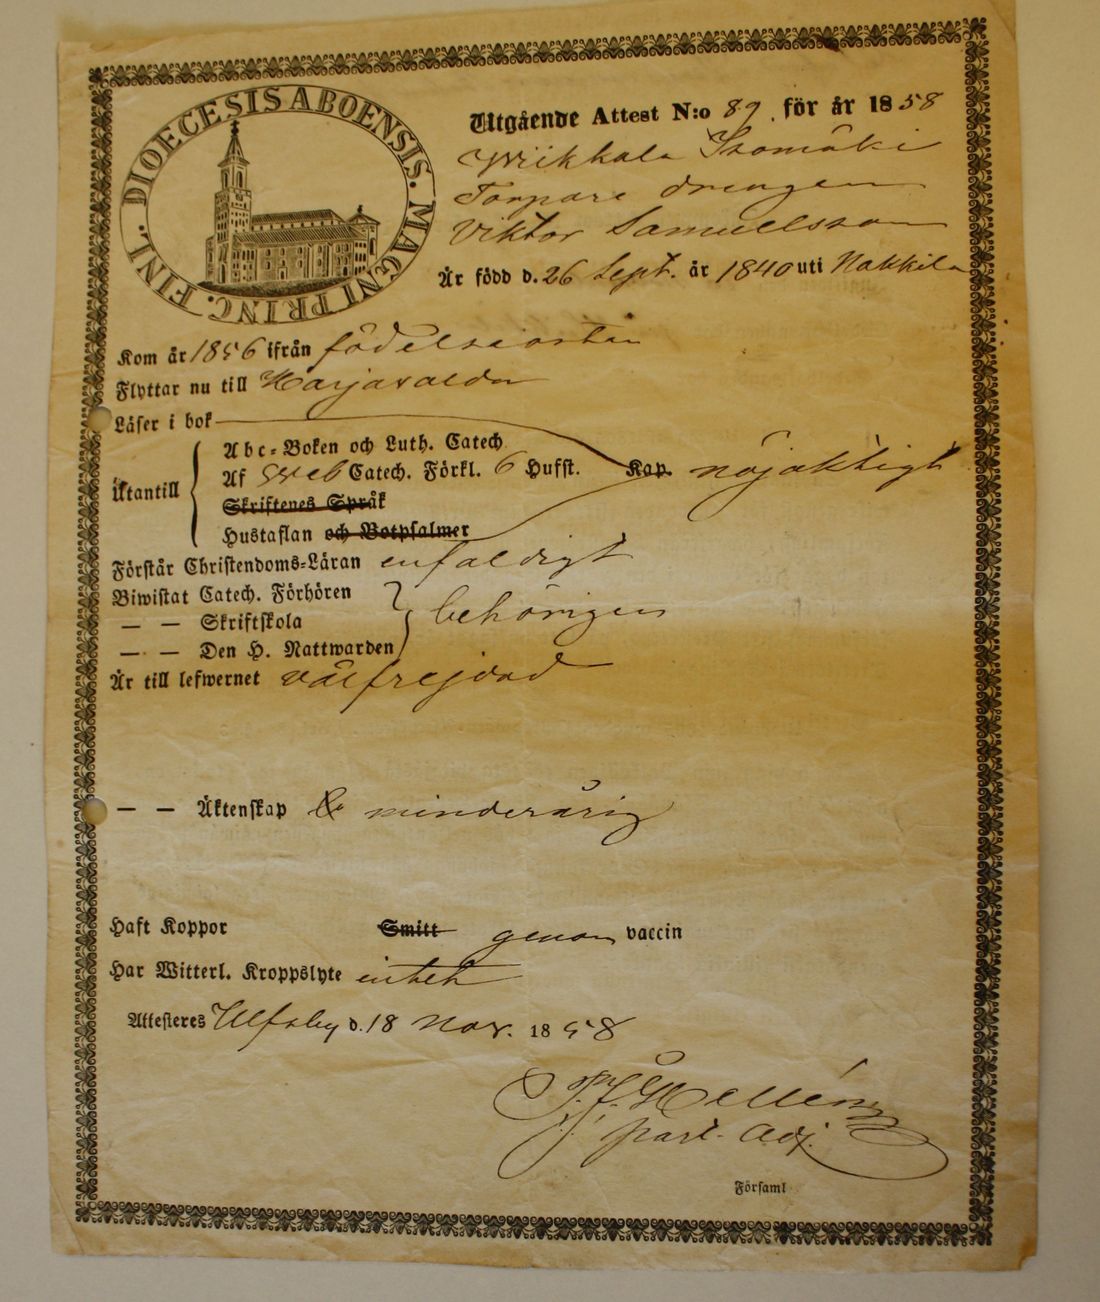 DIOECESIS ABOENSIS. MAGNI PRINC. FINL.
Utgående Attest N:o 89. för år 1858
Wiikkala Isomäki
Torpare drengen
Viktor Samuelsson
Är född d. 26 Sept. år 1840 uti Nakkila
Kom år 1856 ifrån födelseorten
Flyttar nu till Harjavalda
Läser i bok
Abc-Boken och Luth. Catech
Utantill
Af Sveb Catech. Förkl. 6 Hufst. Kap. nöjaktigt
Skriftenes Språk
Hustaflan och Botpsalmer
Förstår Christendoms-Läran enfaldigt
Biwistat Catech. Förhören
— — Skriftskola behörigen
— — Den H. Nattwarden
Är till lefwernet välfrejdad
— — Äktenskap minderårig
Haft Koppor Smitt genom vaccin
Har Witterl. Kroppslyte intet
Attesteres Ulfsby d. 18 Nov. 1858
Hellén
past. Adj.
Församl